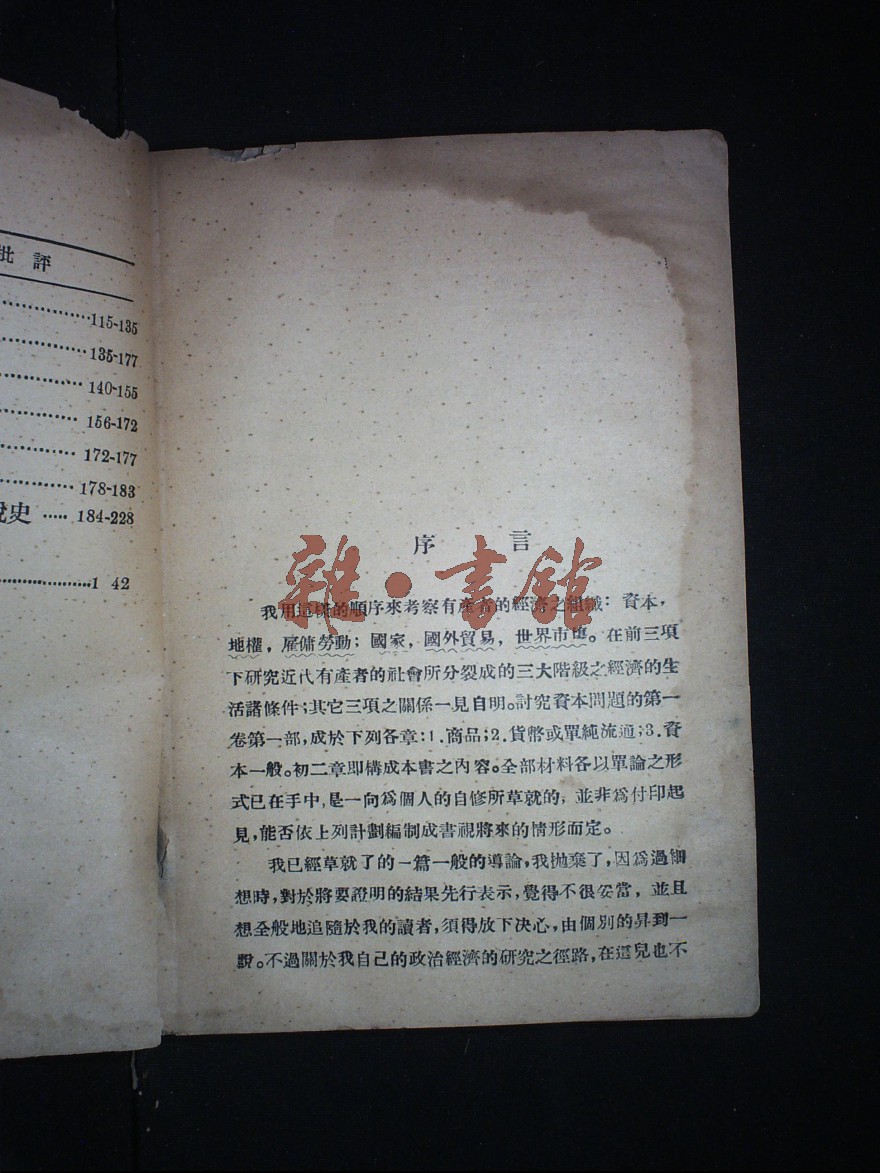 批評
115-135
135-177
140-155
156-172
172-177
178-183
史 ····· 184-228
1 42
雜·書館
序 言
我用這樣的順序來考察有產者的經濟之組織：資本，
地權，雇傭勞動；國家，國外貿易，世界市場。在前三項
下研究近代有產者的社會所分裂成的三大階級之經濟的生
活諸條件；其它三項之關係一見自明。討究資本問題的第一
卷第一部，成於下列各章：1.商品；2.貨幣或單純流通；3.資
本一般。初二章即構成本書之內容。全部材料各以單論之形
式已在手中，是一向爲個人的自修所草就的，並非爲付印起
見，能否依上列計劃編制成書視將來的情形而定。
我已經草就了的一篇一般的導論，我拋棄了，因爲過細
想時，對於將要證明的結果先行表示，覺得不很妥當，並且
想全般地追隨於我的讀者，須得放下決心，由個別的昇到一
般。不過關於我自己的政治經濟的研究之徑路，在這兒也不